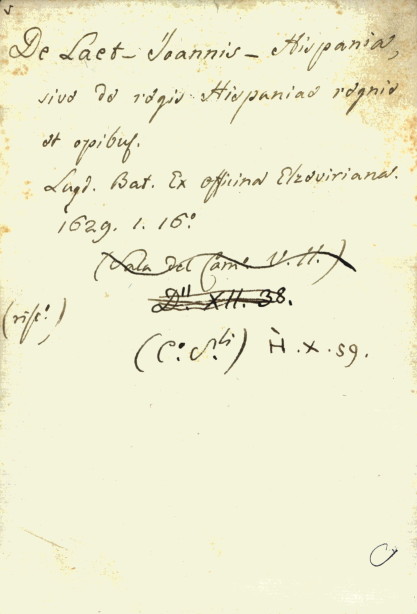 De Laet - Joannis - Hispania,
sive de regis Hispaniae regnis
et opibus.
Lugd. Bat. Ex officina Elzeviriana.
1629. 1. 16.º
(Sala del Cam.º V. II.)
D'' XII. 38.
(C.º S.li) H. X. 59.